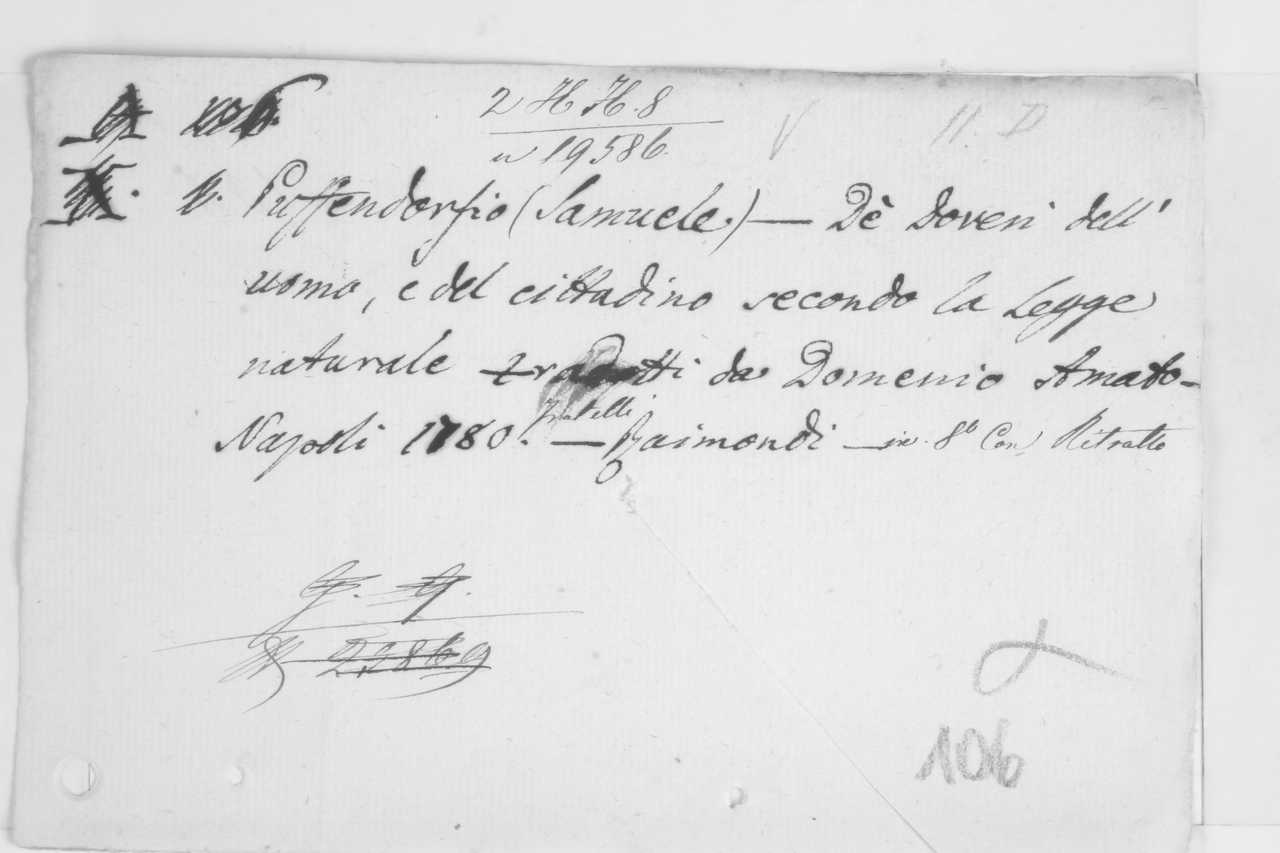 2 H H. 8
V
11. D
n 19586.
Puffendorfio (Samuele.) — Dè doveri dell'
uomo, e del cittadino secondo la Legge
naturale tradotti da Domenico Amato-
Napoli 1780. — fratelli Raimondi — in 8º Con Ritratto
22869
106